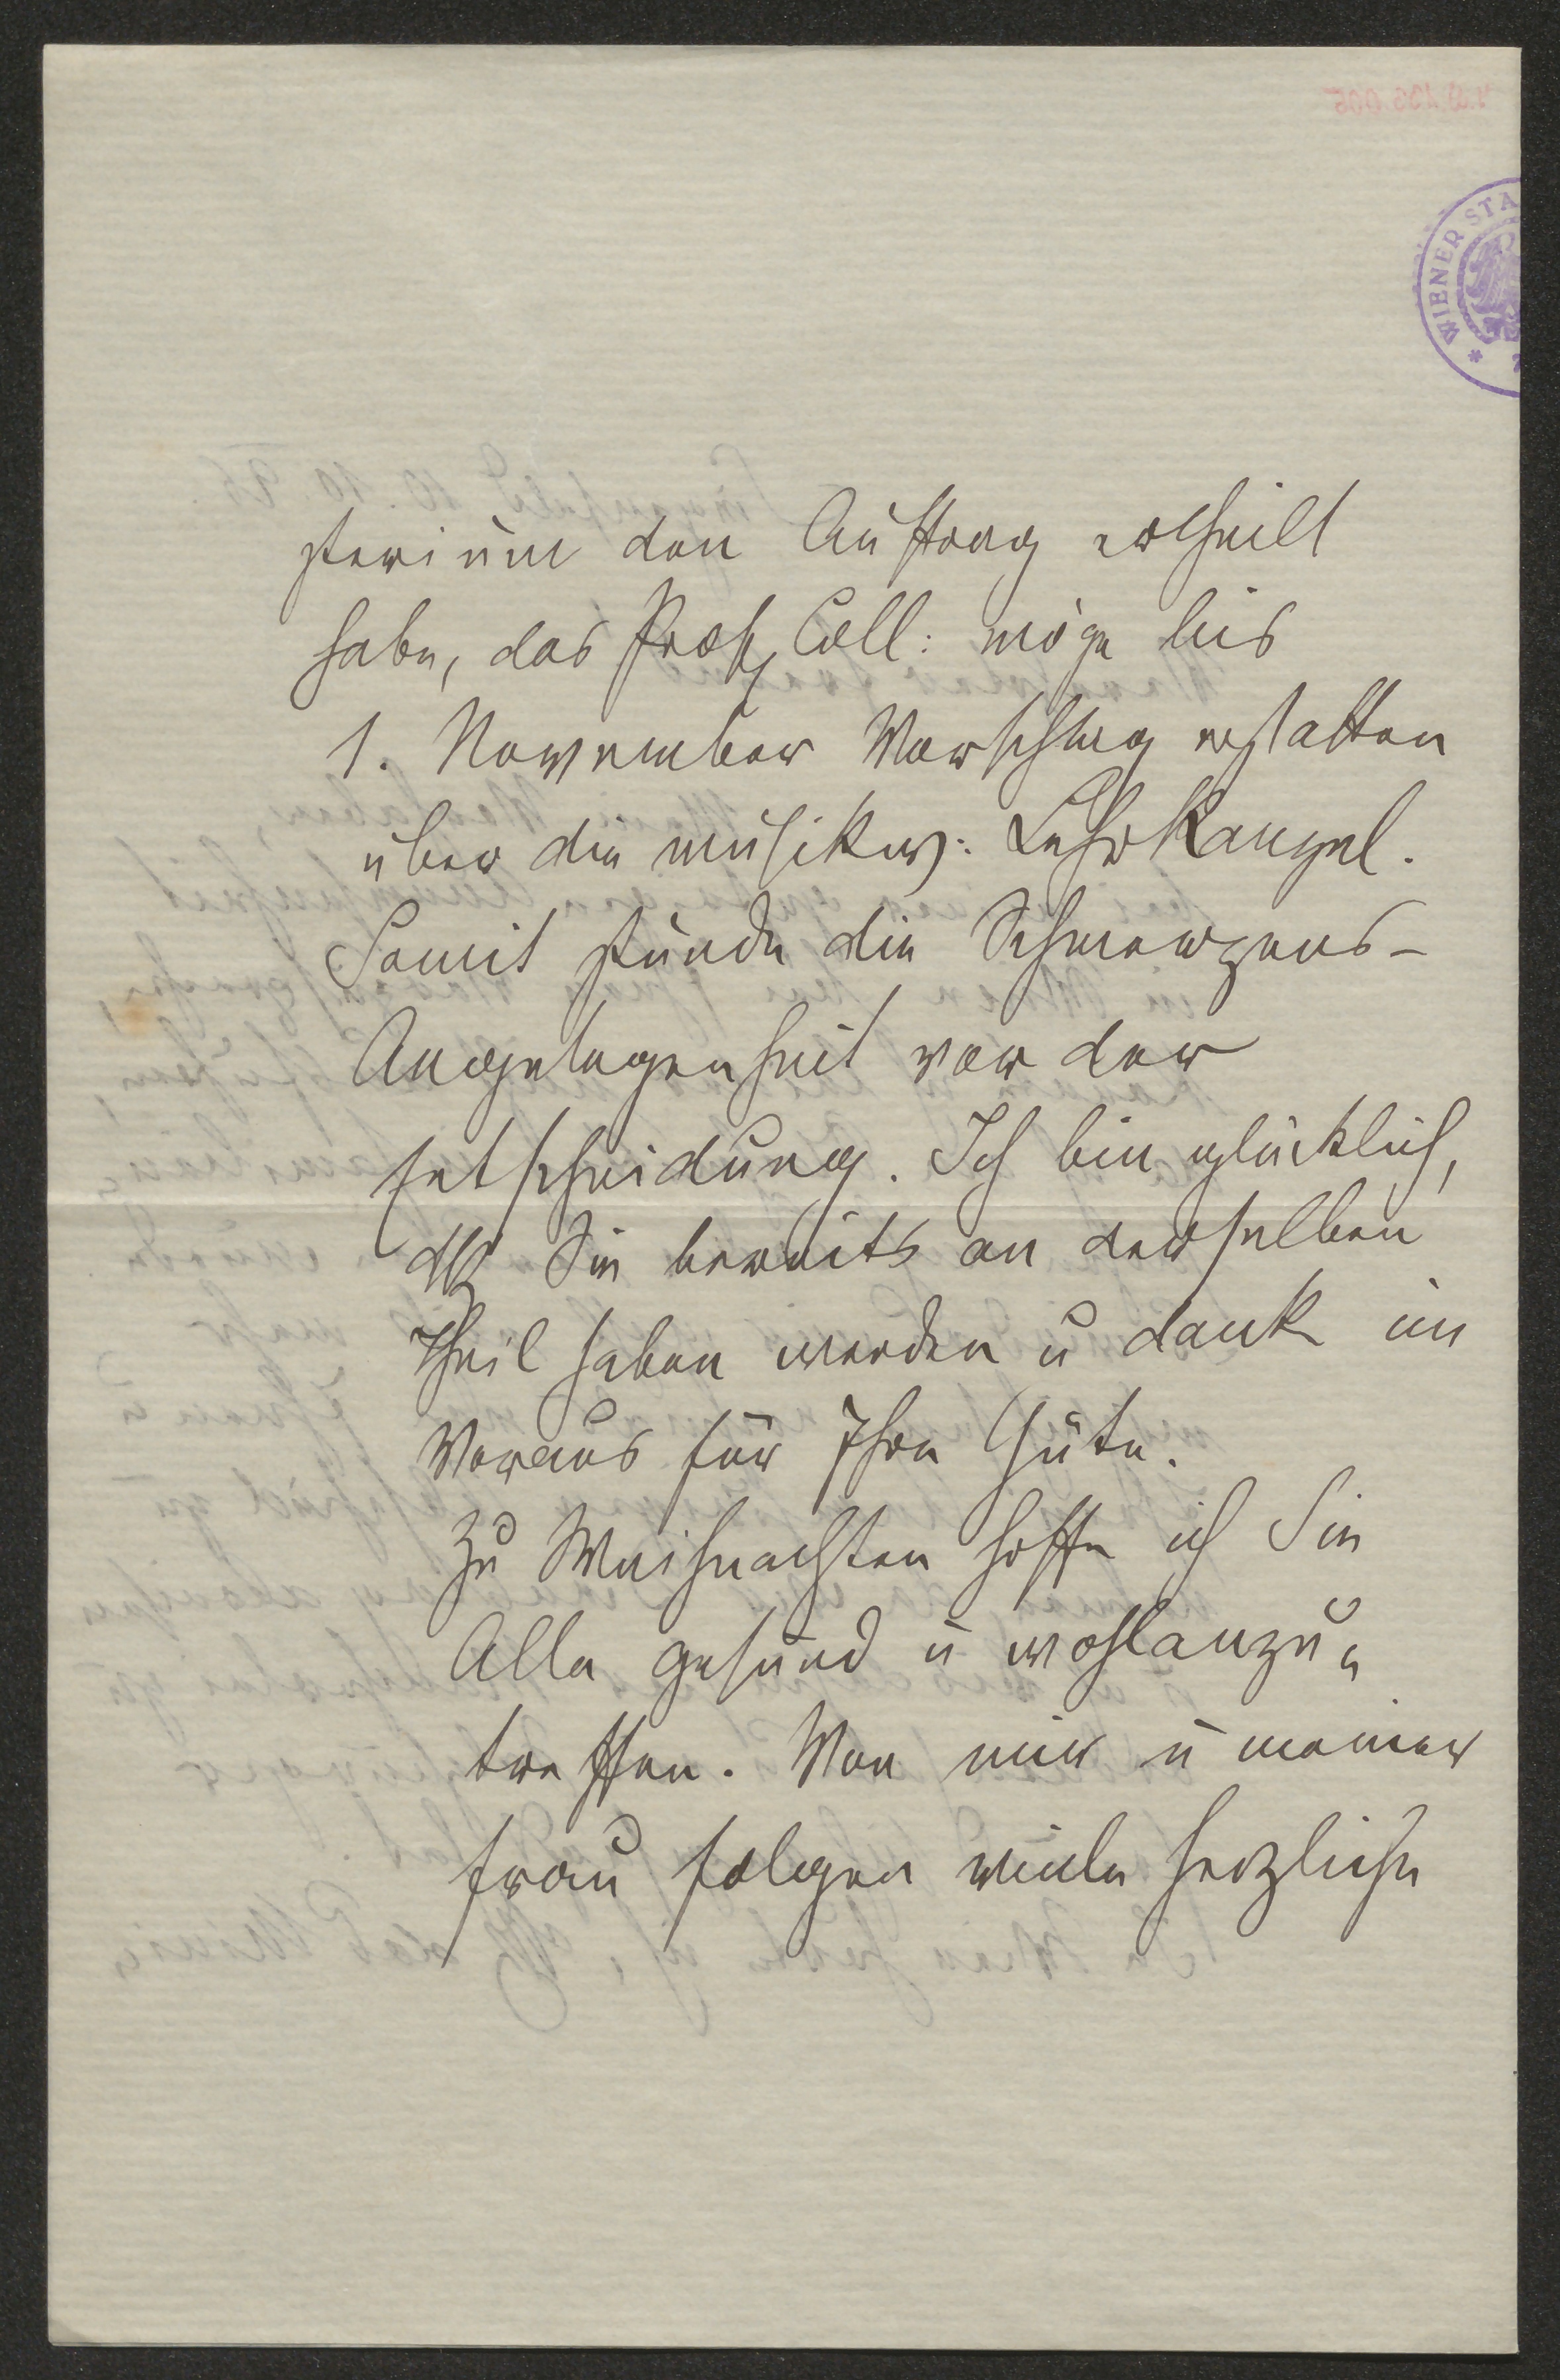 WIENER STA
sterium den Auftrag ertheilt
habe, das Prof. Coll: möge bis
1. November Vorschlag erstatten
über die musikw: Lehrkanzel.
Somit stünde die Schmerzens-
Angelegenheit vor der
Entscheidung. Ich bin glücklich,
dß Sie bereits an derselben
Theil haben werden u dank im
Voraus für Ihre Güte.
Zu Weihnachten hoffe ich Sie
Alle gesund u wohlanzu„
treffen. Von mir u meiner
Frau folgen viele herzliche